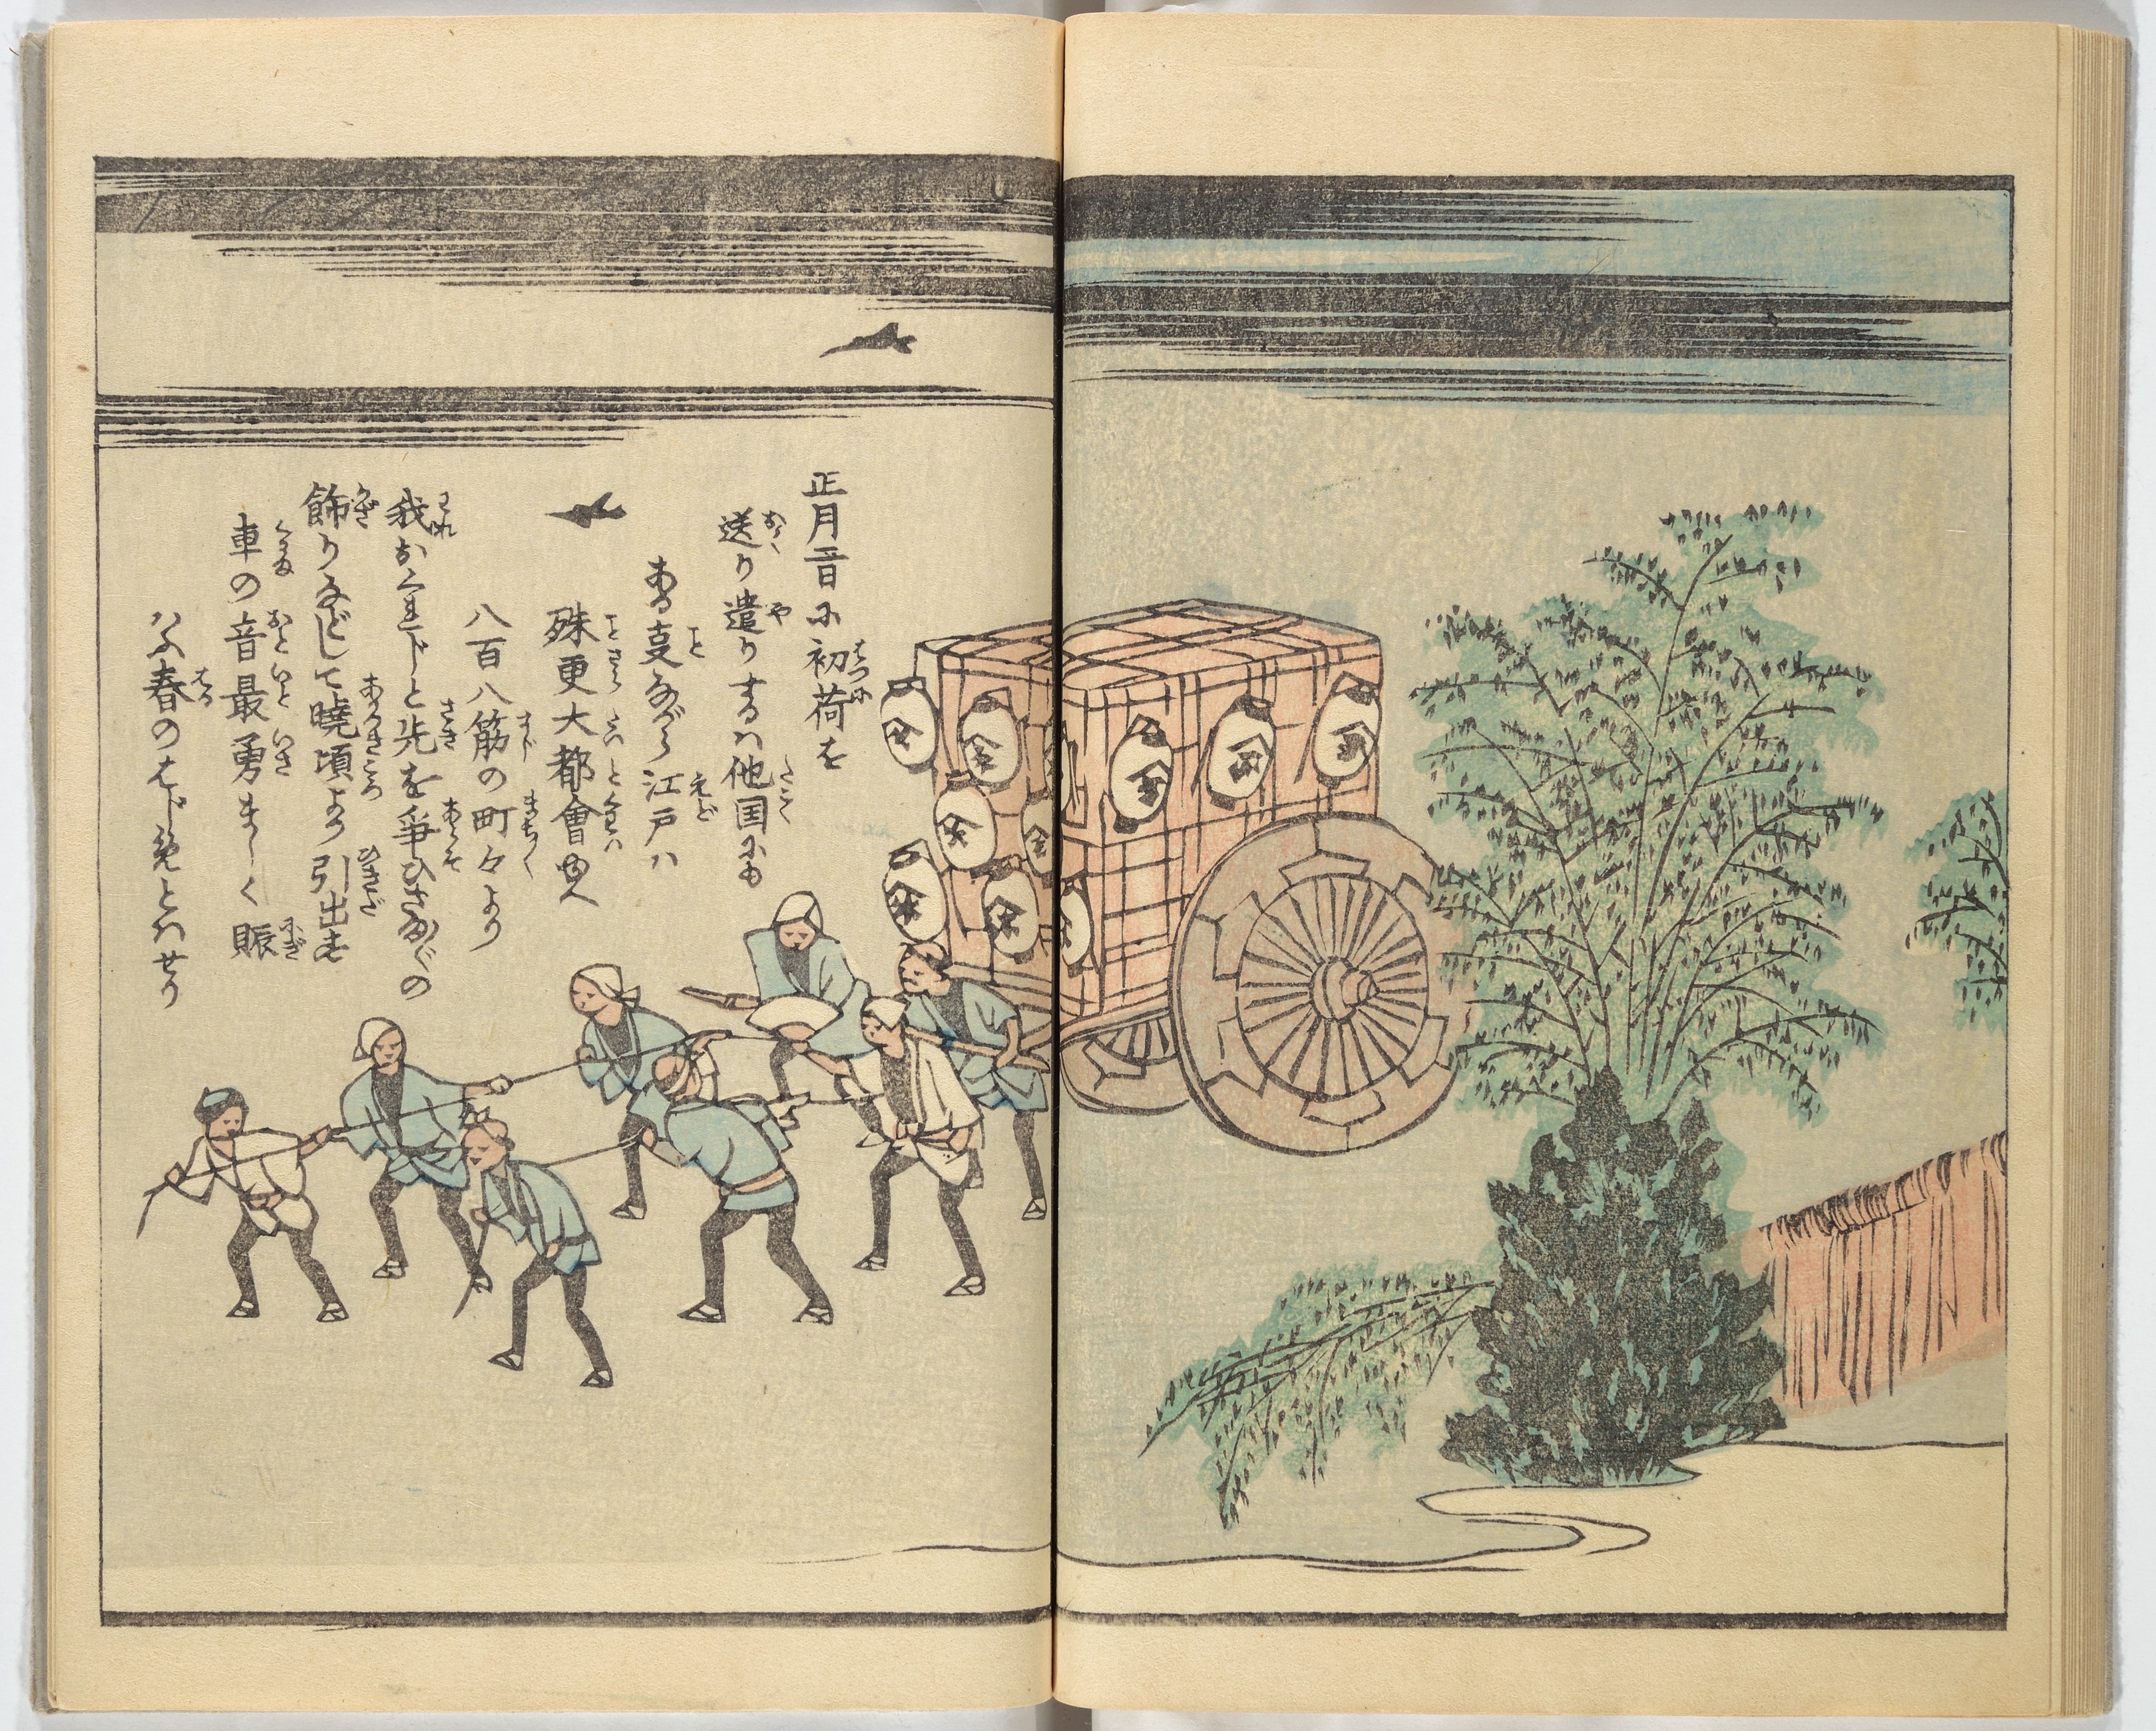 正月二日に初荷を
送り遣りするハ他国にも
ある事ながら江戸ハ
殊更大都會ゆへ
八百八筋の町々より
我おくれじと先を爭ひさま〲の
飾りなどして曉頃より引出す
車の音最勇ましく賑
ハふ春のはじめとハせり